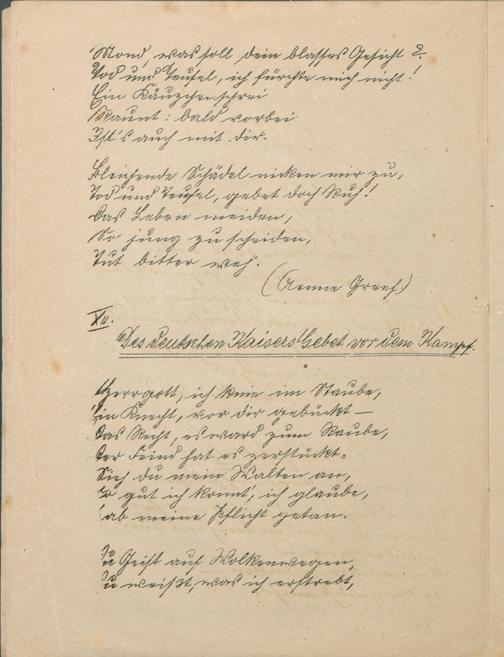 Mond, was soll dein blasses Gesicht?
Tod und Teufel, ich fürchte mich nicht!
Ein Käuzchenschrei
Raunt: bald vorbei
Ist's auch mit dir.
Bleichende Schädel nicken mir zu,
Tod und Teufel, gebet doch Ruh!
Das Leben meiden,
So jung zu scheiden,
Tut bitter weh.
(Aenne Greef.)
XII.
Des deutschen Kaisers Gebet vor dem Kampf.
Herrgott, ich knie im Staube,
Ein Knecht, vor dir gebückt –
Das Recht, es ward zum Raube,
Der Feind hat es zerstückt.
Sieh du mein Walten an,
So gut ich konnt, ich glaube,
Hab meine Pflicht getan.
Du Geist auf Wolkenwegen,
Du weißt, was ich erstrebt,